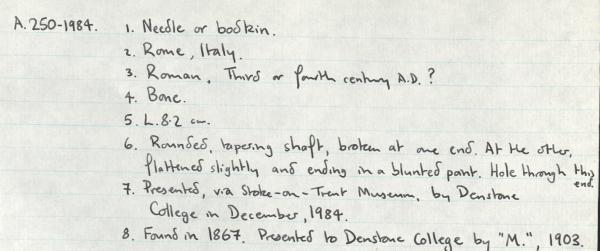 A.250-1984. 1. Needle or bodkin.
2. Rome, Italy.
3. Roman, Third or fourth century A.D.?
4. Bone.
5. L.8.2 cm.
6. Rounded, tapering shaft, broken at one end. At the other,
flattened slightly and ending in a blunted point. Hole through this
end.
7. Presented, via Stoke-on-Trent Museum, by Denstone
College in December, 1984.
8. Found in 1867. Presented to Denstone College by "M.", 1903.